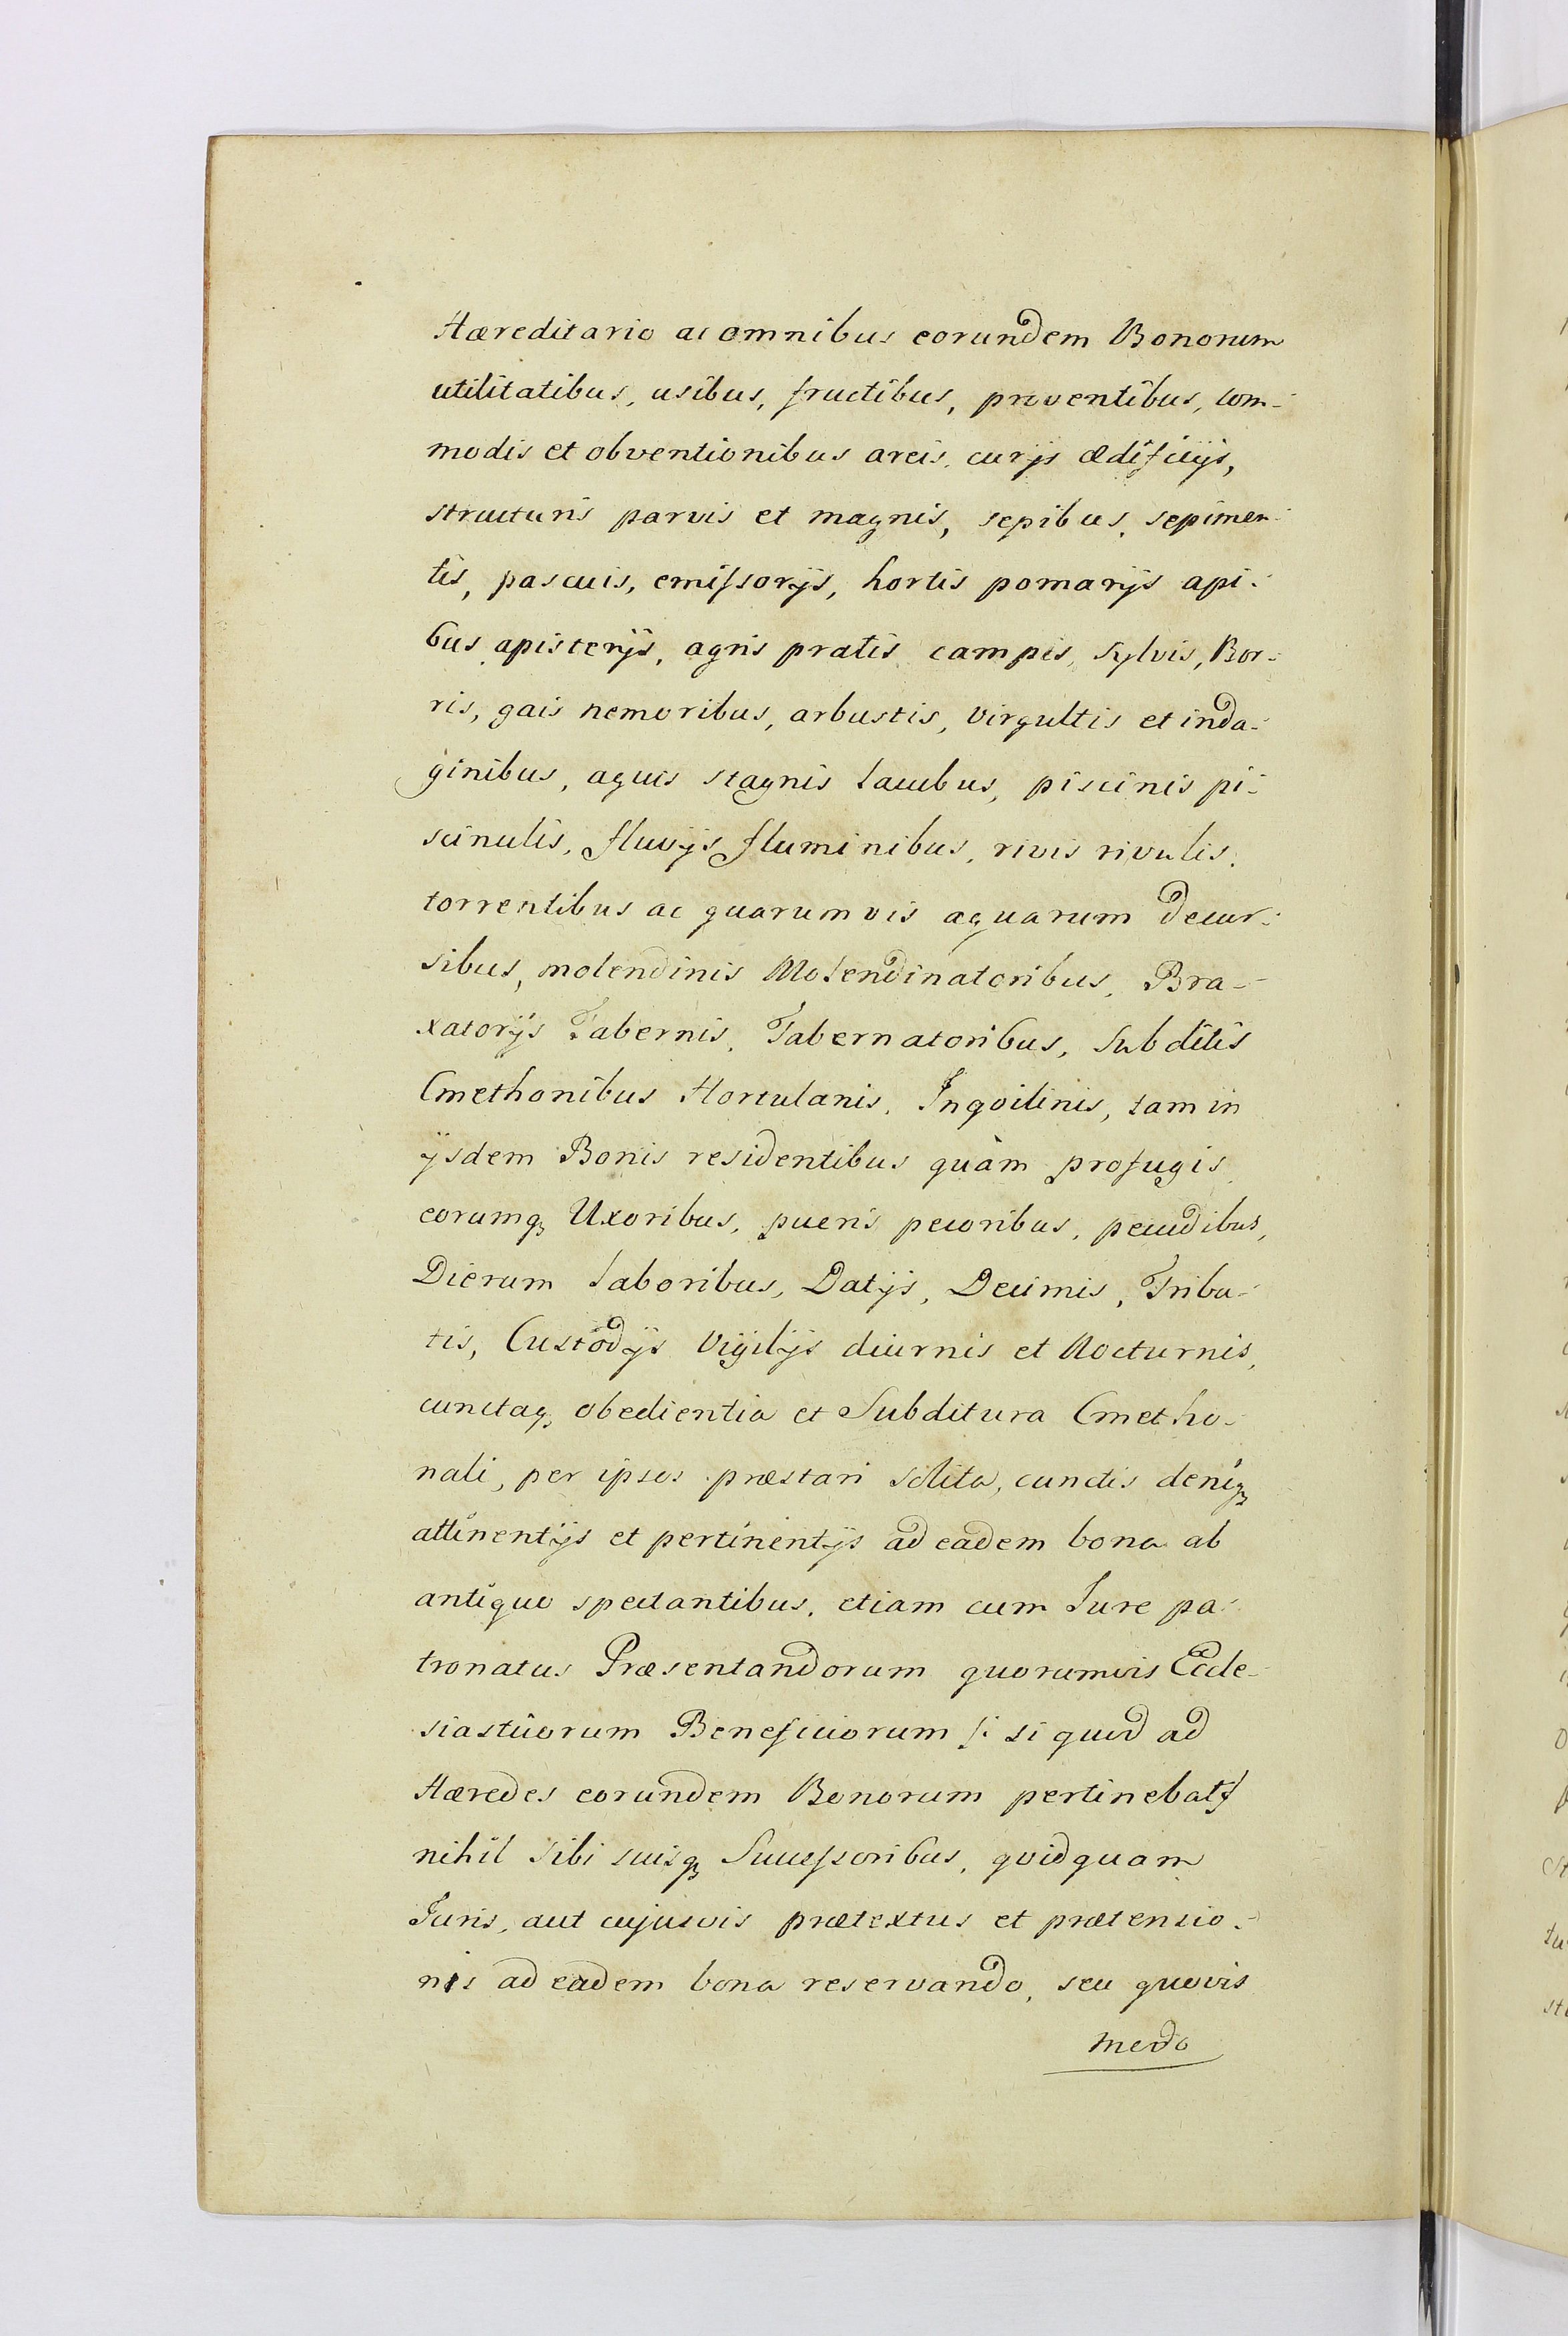 Hæreditario ac omnibus eorundem Bonorum
utilitatibus, usibus, fructibus, proventibus, com-
modis et obventionibus areis, curijs ædificijs,
structuris parvis et magnis, sepibus, sepimen-
tis, pascuis, emissorijs, hortis pomarijs api-
bus apisterijs, agris pratis campis, sylvis, Bor-
ris, gais nemoribus, arbustis, virgultis et inda-
ginibus, aquis stagnis lacubus, piscinis pi-
scinulis, fluvijs fluminibus, rivis rivulis,
torrentibus ac quarumvis aquarum decur-
sibus, molendinis Molendinatoribus, Bra-
xatorijs Tabernis, Tabernatoribus, Subditis
Cmethonibus Hortulanis, Inqvilinis, tam in
ijsdem Bonis residentibus quàm profugis,
eorumq; Uxoribus, pueris pecoribus, pecudibus,
Dierum laboribus, Datijs, Decimis, Tribu-
tis, Custodijs Vigilijs diurnis et Nocturnis,
cunctaq; obedientia et Subditura Cmetho-
nali, per ipsos præstari solita, cunctis deniq;
attinentijs et pertinentijs ad eadem bona ab
antiquo spectantibus, etiam cum Jure pa-
tronatus Præsentandorum quorumvis Eccle-
siasticorum Beneficiorum /: si quid ad
Hæredes eorundem Bonorum pertinebat :/
nihil sibi suisq; Successoribus, qvidquam
Juris, aut cujusvis prætextus et prætensio-
nis ad eadem bona reservando, seu quovis
modo